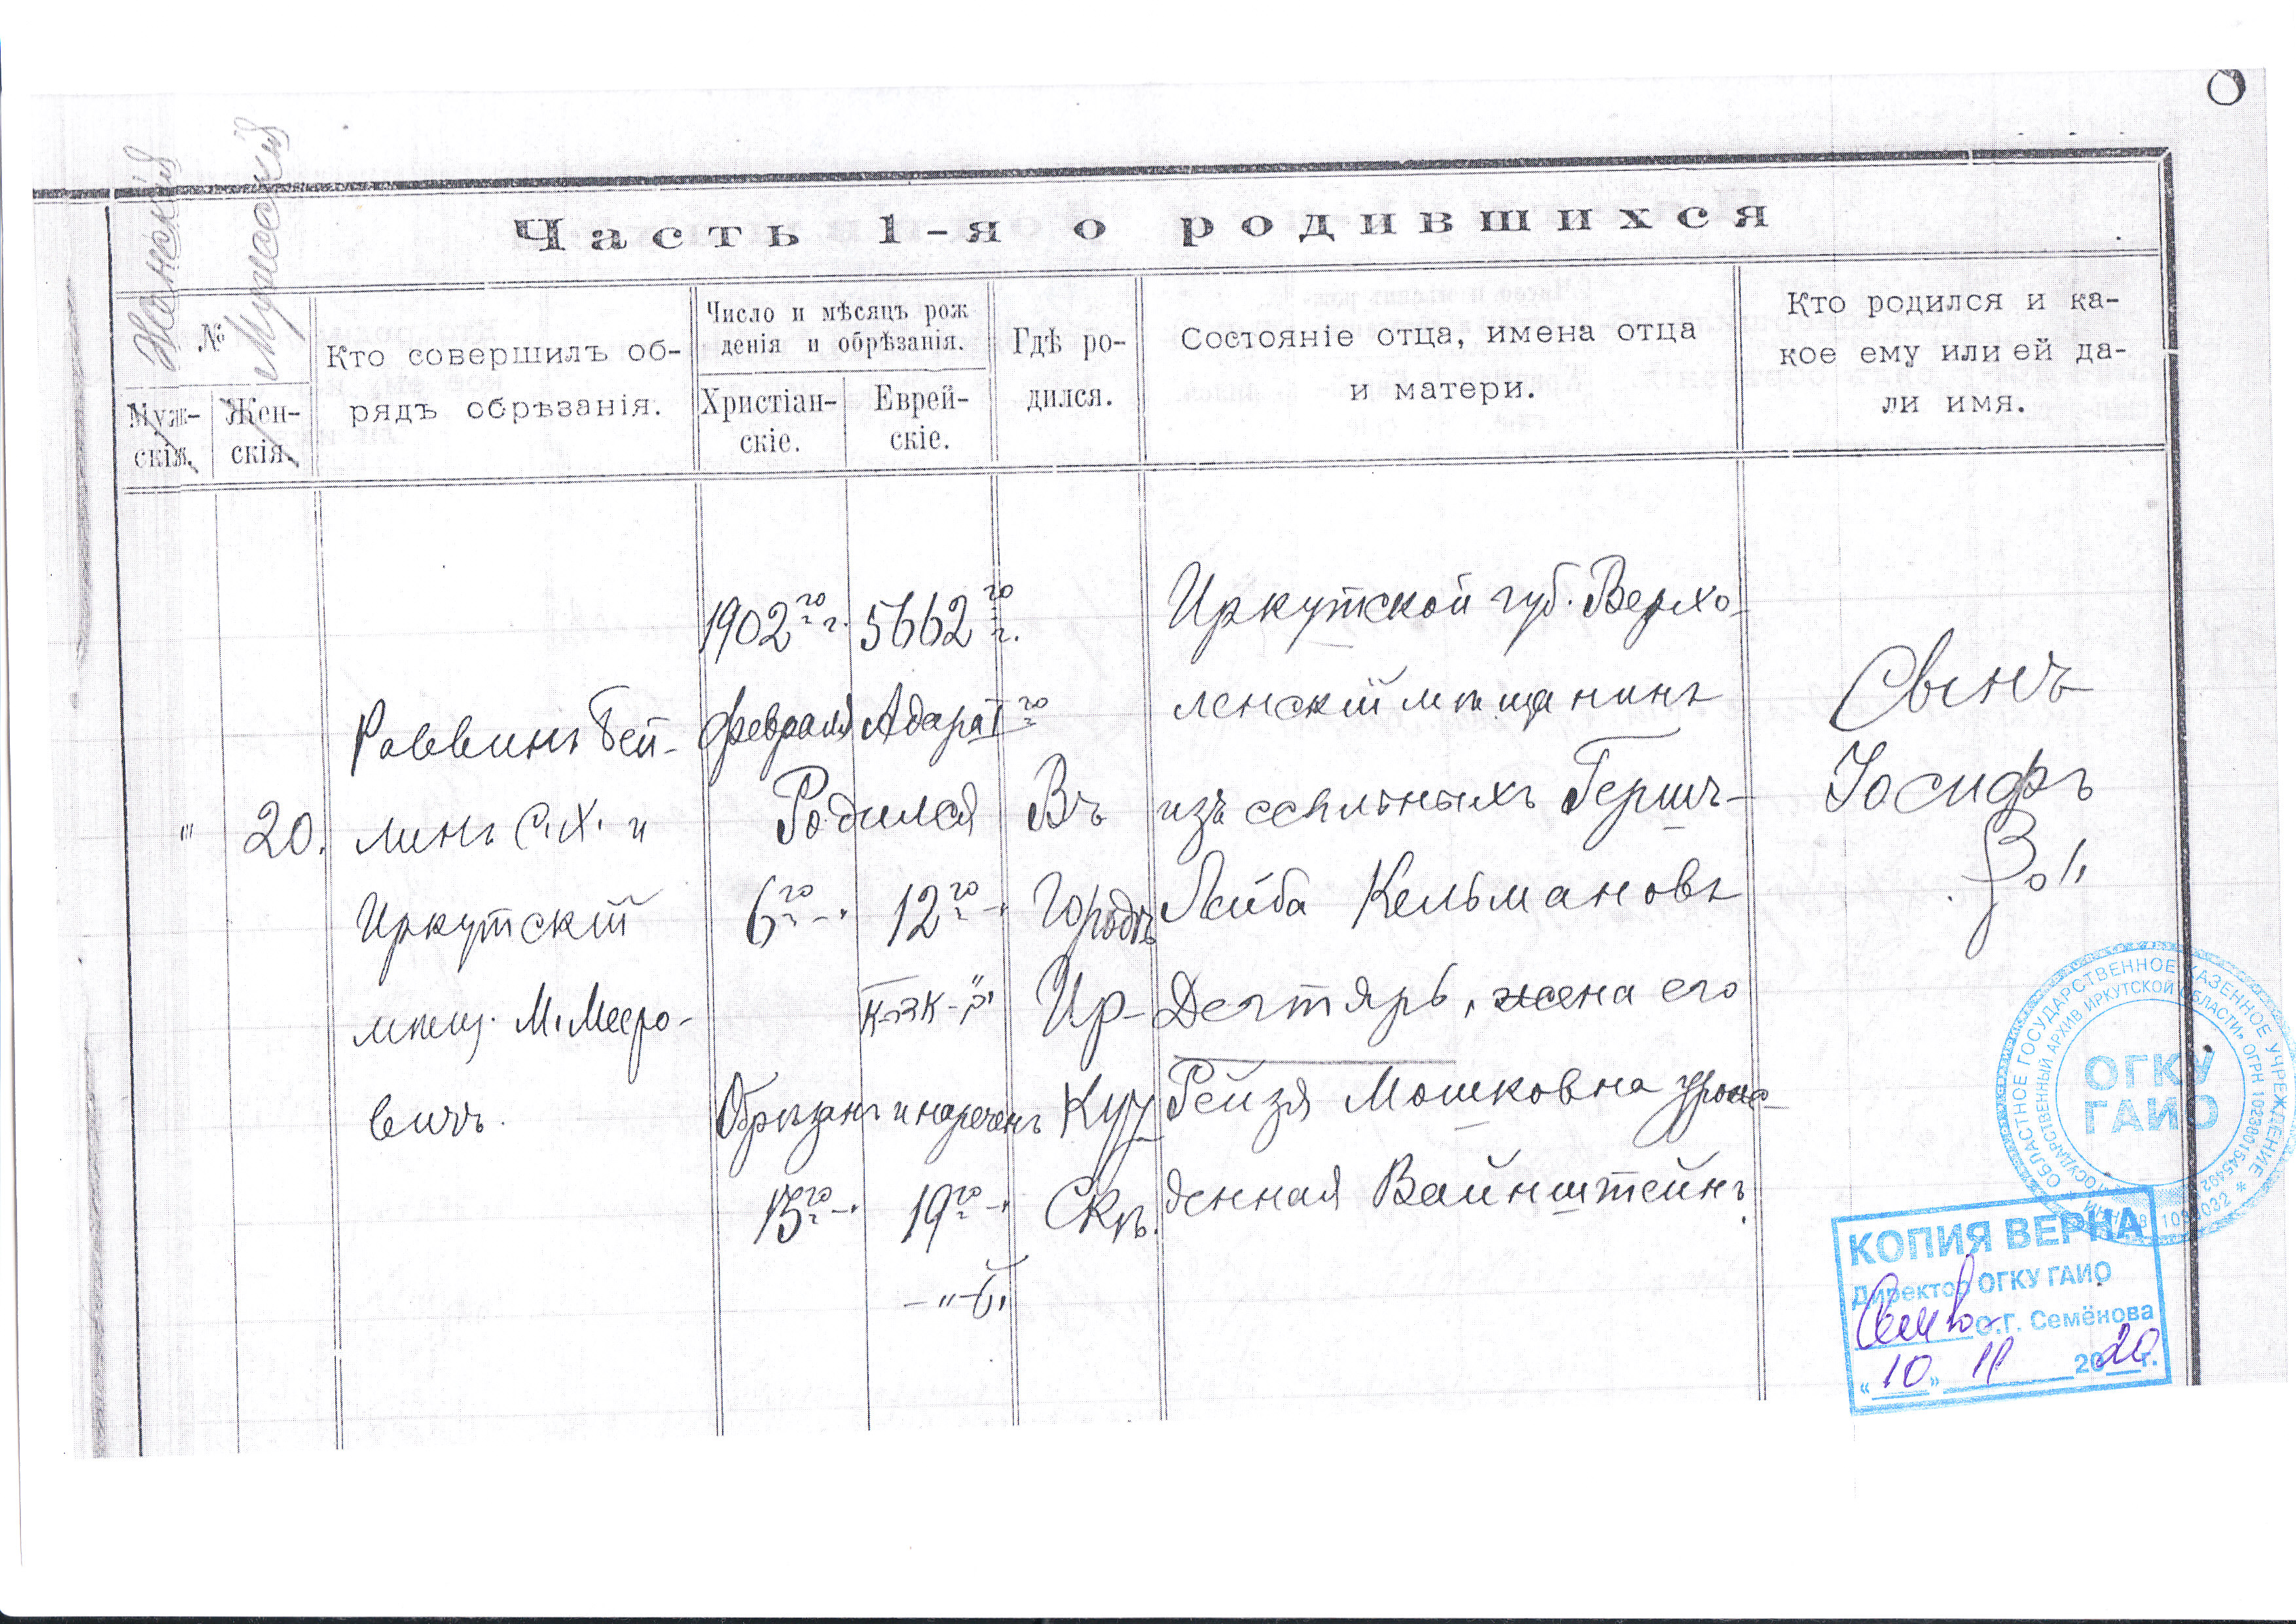 8
Женскій
Мужескій
Часть 1-я о родившихся
№
Муж-
скія.
Жен-
скія.
Кто совершилъ об-
рядъ обрѣзанія.
Число и мѣсяцъ рож
денія и обрѣзанія.
Христіан-
скіе.
Еврей-
скіе.
Гдѣ ро-
дился.
Состояніе отца, имена отца
и матери.
Кто родился и ка-
кое ему или ей да-
ли имя.
"
20.
Раввинъ Бей-
линъ С. Х. и
Иркутскій
мѣщ. М. Мееро-
вичъ.
1902го г. 5662го г.
Февраля Адара I го
Родился
6го -"- 12го -"-
Обрѣзанъ и нареченъ
13го -"- 19го -"-
Въ
Городѣ
Ир-
кут
скѣ.
Иркутской губ. Верхо-
ленскій мѣщанинъ
изъ ссыльныхъ Гершъ-
Лейба Кельмановъ
Дегтярь, жена его
Рейзя Мошковна урож-
денная Вайнштейнъ.
Сынъ
Іосифъ
ОБЛАСТНОЕ ГОСУДАРСТВЕННОЕ КАЗЕННОЕ УЧРЕЖДЕНИЕ
ГОСУДАРСТВЕННЫЙ АРХИВ ИРКУТСКОЙ ОБЛАСТИ»
ОГКУ
ГАИО
КОПИЯ ВЕРНА
Директор ОГКУ ГАИО
О.Г. Семёнова
«10» 11 2020г.